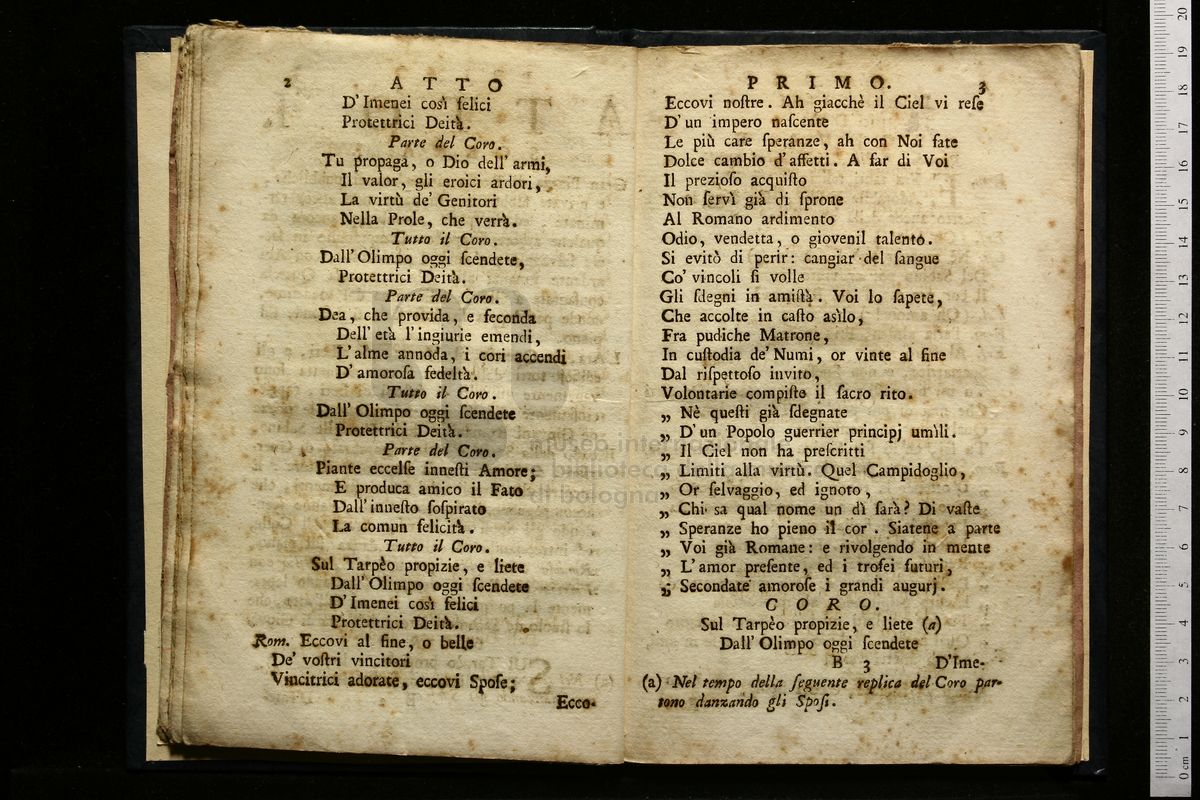 2 ATTO
D'Imenei così ſelici
Protettrici Deità.
Parte del Coro.
Tu propaga, o Dio dell'armi,
Il valor, gli eroici ardori,
La virtù de' Genitori
Nella Prole, che verrà.
Tutto il Coro.
Dall'Olimpo oggi ſcendete,
Protettrici Deità.
Parte del Coro.
Dea, che provida, e feconda
Dell' età l'ingiurie emendi,
L'alme annoda, i cori accendi
D'amoroſa fedeltà.
Tutto il Coro.
Dall'Olimpo oggi ſcendete
Protettrici Deità.
Parte del Coro.
Piante eccelſe inneſti Amore;
E produca amico il Fato
Dall'inneſto ſoſpirato
La comun felicità.
Tutto il Coro.
Sul Tarpèo propizie, e liete
Dall'Olimpo oggi ſcendete
D'Imenei così felici
Protettrici Deità.
Rom. Eccovi al fine, o belle
De' voſtri vincitori
Vincitrici adorate, eccovi Spoſe;
Ecco-
PRIMO. 3
Eccovi noſtre. Ah giacchè il Ciel vi reſe
D'un impero naſcente
Le più care ſperanze, ah con Noi fate
Dolce cambio d'affetti. A far di Voi
Il prezioſo acquiſto
Non ſervì già di ſprone
Al Romano ardimento
Odio, vendetta, o giovenil talento.
Si evitò di perir: cangiar del ſangue
Co' vincoli ſi volle
Gli ſdegni in amiſtà. Voi lo ſapete,
Che accolte in caſto asìlo,
Fra pudiche Matrone,
In cuſtodia de' Numi, or vinte al fine
Dal riſpettoſo invito,
Volontarie compiſte il ſacro rito.
„ Nè queſti già ſdegnate
„ D'un Popolo guerrier principj umìli.
„ Il Ciel non ha preſcritti
„ Limiti alla virtù. Quel Campidoglio,
„ Or ſelvaggio, ed ignoto,
„ Chi sa qual nome un dì ſarà? Di vaſte
„ Speranze ho pieno il cor. Siatene a parte
„ Voi già Romane: e rivolgendo in mente
„ L'amor preſente, ed i trofei futuri,
„ Secondate amoroſe i grandi augurj.
CORO.
Sul Tarpèo propizie, e liete (a)
Dall'Olimpo oggi ſcendete
B 3 D'Ime-
(a) Nel tempo della ſeguente replica del Coro par-
tono danzando gli Spoſi.
museo internazionale
e biblioteca
di bologna
0 cm 1 2 3 4 5 6 7 8 9 10 11 12 13 14 15 16 17 18 19 20